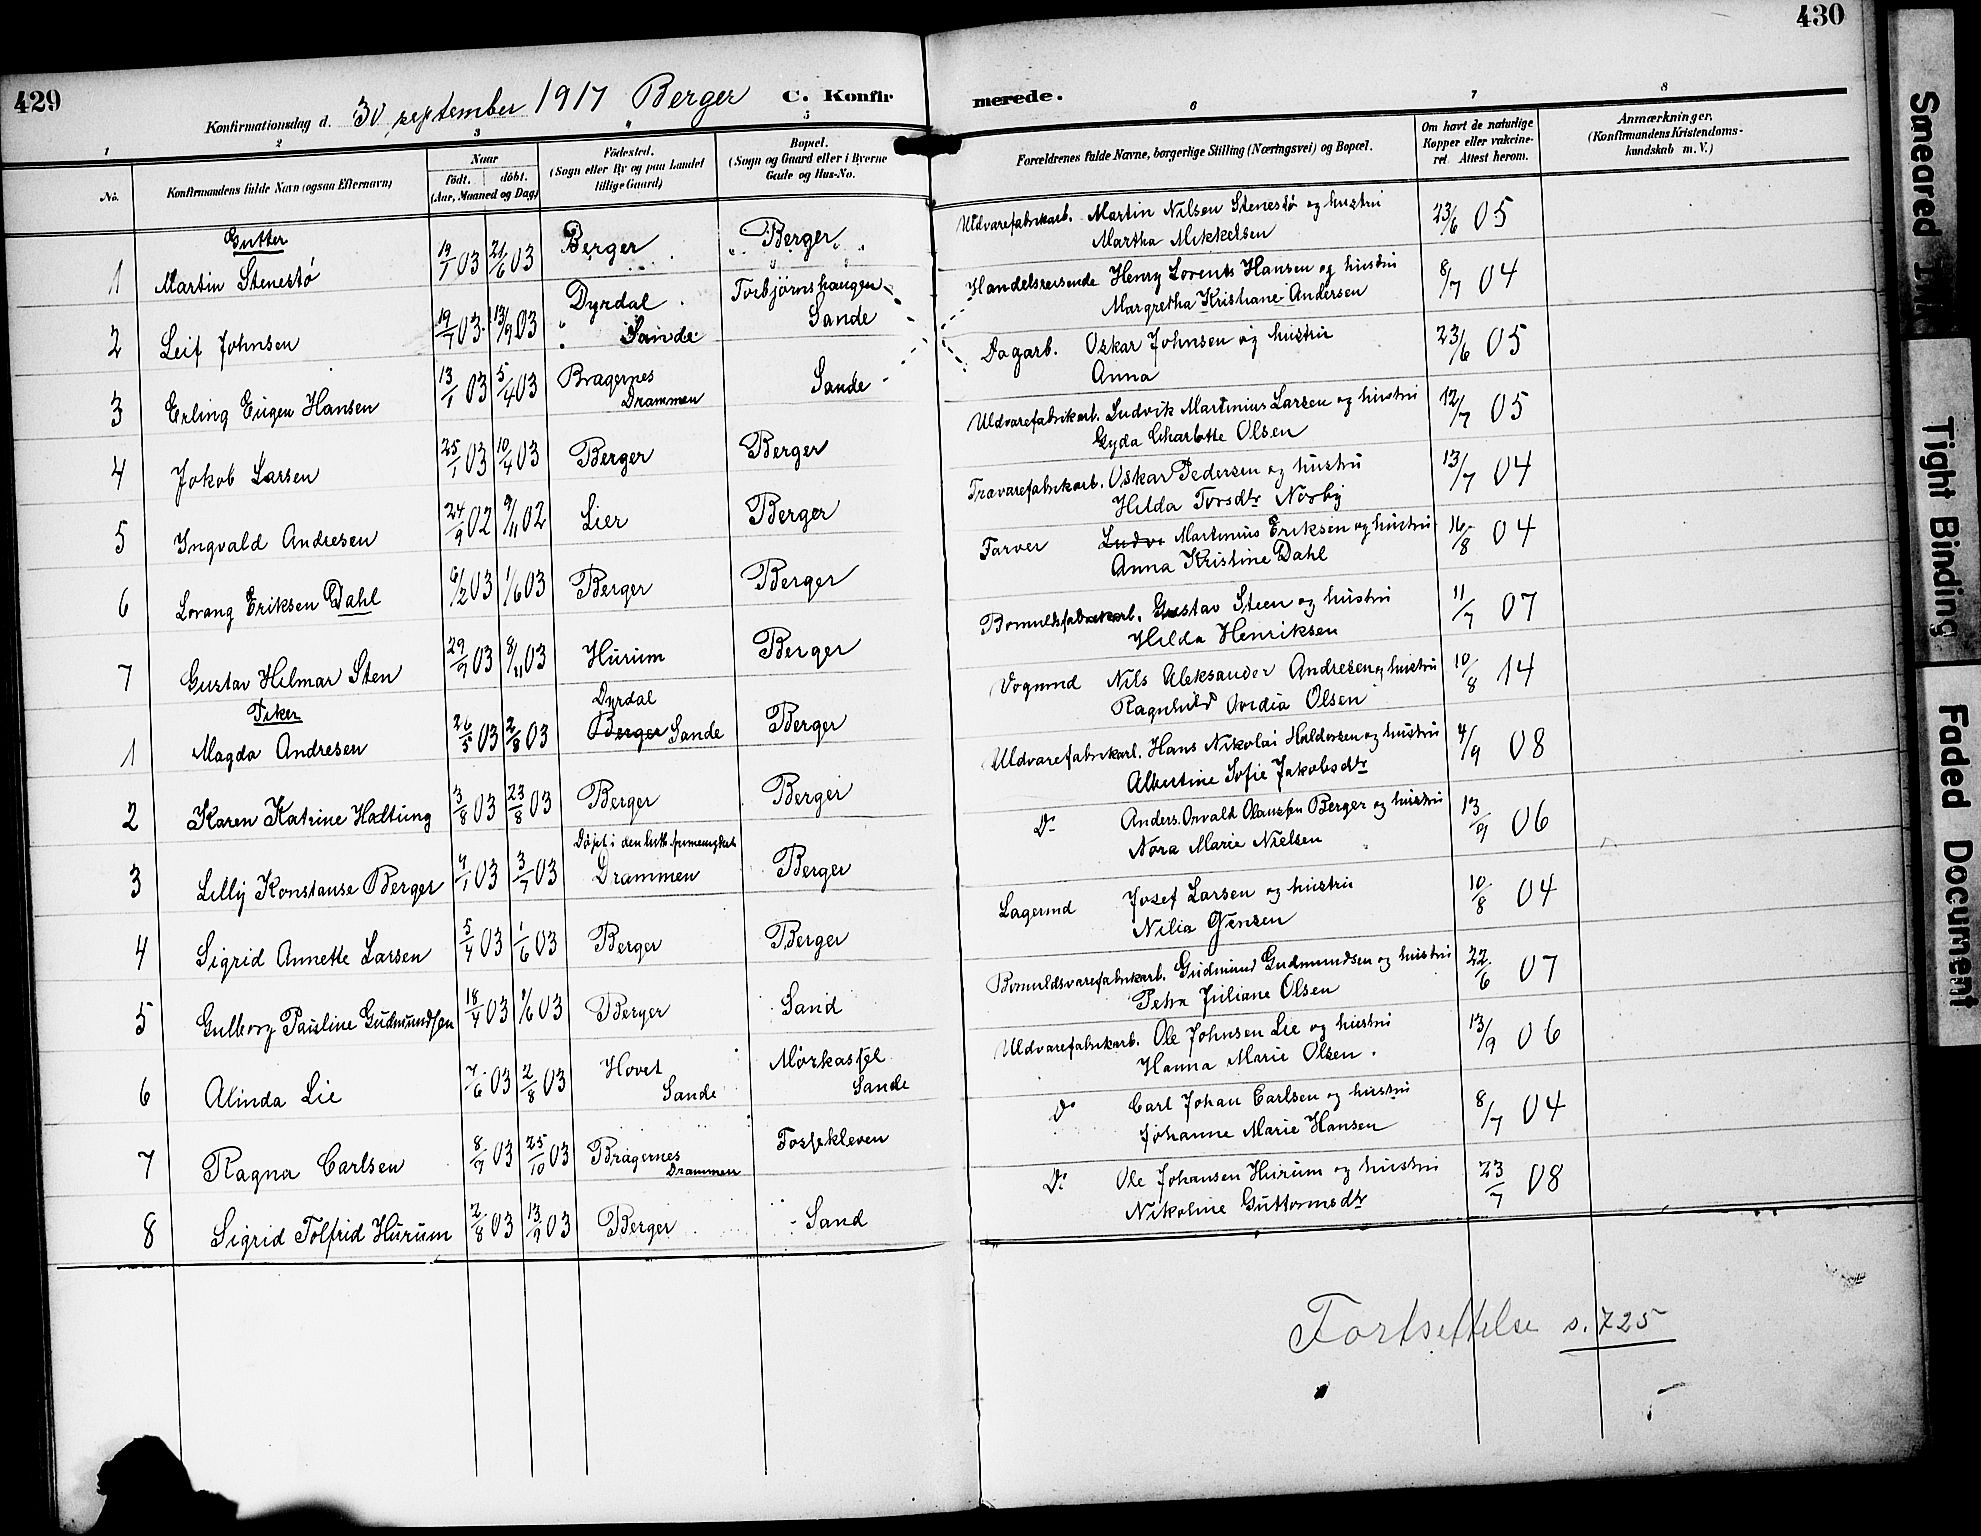 429
430
Konfirmationsdag d. 30 september 1917 Berger C. Konfirmerede.
1 2 3 5 6 7 8
No.
Konfirmandens fulde Navn (ogsaa Efternavn)
Naar
født. døbt.
(Aar, Maaned og Dag)
Fødested.
(Sogn eller By og paa Landet
tillige Gaard)
Bopæl.
(Sogn og Gaard eller i Byerne
Gade og Hus-No.
Forældrenes fulde Navne, borgerlige Stilling (Næringsvei) og Bopæl.
Om havt de naturlige
Kopper eller vakcine-
ret. Attest herom.
Anmærkninger.
(Konfirmandens Kristendoms-
kundskab m. V.)
Gutter
1 Martin Stenestø 19/1 03 21/6 03 Berger Berger Uldvarefabrikarb. Martin Nilsen Stenestø og hustru 23/6 05
Martha Mikkelsen
2 Leif Johnsen 19/7 03 13/9 03 Dyrdal Torbjørnshaugen Handelsreisende Henry Lorents Hansen og hustru 8/7 04
Sande Sande Margretha Kristiane Andersen
3 Erling Eugen Hansen 13/1 03 5/4 03 Bragernes Sande Dagarb. Oskar Johnsen og hustru 23/6 05
Drammen Anna
4 Jakob Larsen 25/1 03 10/4 03 Berger Berger Uldvarefabrikarb. Ludvik Martinius Larsen og hustru 12/7 05
Gyda Charlotte Olsen
5 Ingvald Andresen 24/9 02 9/11 02 Lier Berger Trævarefabrikarb. Oskar Pedersen og hustru 13/7 04
Hilda Torsdtr Norby
6 Lorang Eriksen Dahl 6/2 03 1/6 03 Berger Berger Farver Ludvi Martinius Eriksen og hustru 16/8 04
Anna Kristine Dahl
7 Gustav Hilmar Sten 29/9 03 8/11 03 Hurum Berger Bomuldsfabrikarb. Gustav Steen og hustru 11/7 07
Hilda Henriksen
Piker
1 Magda Andresen 26/5 03 2/8 03 Dyrdal Berger Sande Berger Vognmd Nils Aleksander Andresen og hustru 10/8 14
Ragnhild Ovidia Olsen
2 Karen Katrine Haltung 3/8 03 23/8 03 Berger Berger Uldvarefabrikarb. Hans Nikolai Haldorsen og hustru 4/9 08
Albertine Sofie Jakobsdtr
3 Lilly Konstanse Berger 4/1 03 3/7 03 Døpt i den luth. frimenighet Berger Do Anders Osvald Olausen Berger og hustru 13/9 06
Drammen Nora Marie Nielsen
4 Sigrid Annette Larsen 5/4 03 1/6 03 Berger Berger Lagermd Josef Larsen og hustru 10/8 04
Nilia Jensen
5 Gulborg Pauline Gudmundsen 18/4 03 1/6 03 Berger Sand Bomuldsvarefabrikarb. Gudmund Gudmundsen og hustru 22/6 07
Petra Juliane Olsen
6 Alinda Lie 7/6 03 2/8 03 Hovet Mørkassel Uldvarefabrikarb. Ole Johnsen Lie og hustru 13/9 06
Sande Sande Hanna Marie Olsen.
7 Ragna Carlsen 8/9 03 25/10 03 Bragernes Fossekleven Do Carl Johan Carlsen og hustru 8/7 04
Drammen Johanne Marie Hansen
8 Sigrid Tolfrid Hurum 2/8 03 13/9 03 Berger Sand Do Ole Johansen Hurum og hustru 23/7 08
Nikoline Guttormsdtr
Fortsettelse s. 725
Smeared
Tight Binding
Faded Document